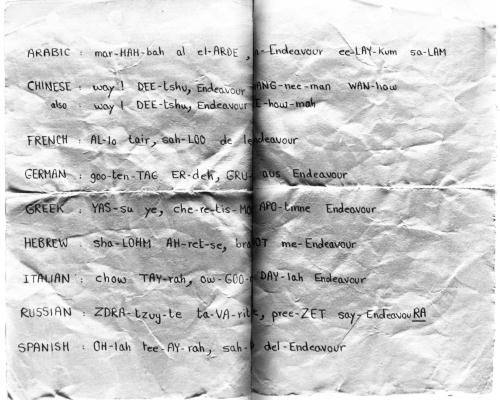 ARABIC : mar-HAH-bah al el-ARDE, Endeavour ee-LAY-kum sa-LAM
CHINESE : way! DEE-tshu, Endeavour ANG-nee-man WAN-how
also : way! DEE-tshu, Endeavour E-how-mah
FRENCH : AL-lo tair, sah-LOO de Endeavour
GERMAN : goo-ten-TAG ER-deh, GRU aus Endeavour
GREEK : YAS-su ye, che-re-tis-MO APO-tinne Endeavour
HEBREW : sha-LOHM AH-ret-se, me-Endeavour
ITALIAN : chow TAY-rah, ow-GOO DAY-lah Endeavour
RUSSIAN : ZDRA-tzvy-te ta-VA-rits, pree-ZET say-EndeavouRA
SPANISH : OH-lah tee-AY-rah, sah- del-Endeavour